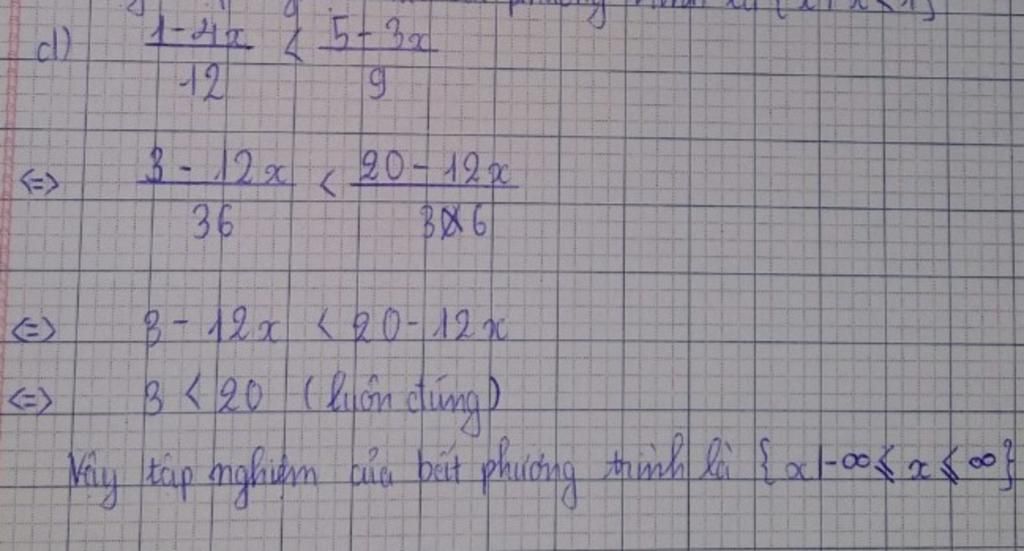 phương trình là {x | x < 1}
d) (1-4x)/12 < (5-3x)/9
<=> (3-12x)/36 < (20-12x)/36
<=> 3-12x < 20-12x
<=> 3 < 20 (luôn đúng)
Vậy tập nghiệm của bất phương trình là {x | -∞ ≤ x ≤ ∞}